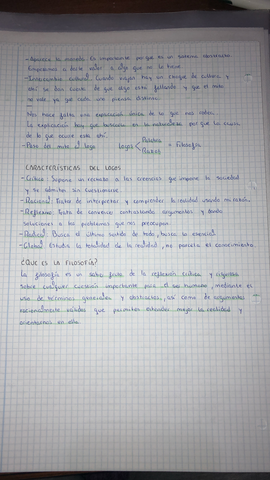 - Aparece la moneda. Es importante porque es un sistema
Empezamos a darle valor a algo que no lo tiene.
- Intercambio cultural. Cuando viajas hay un choque de cultura y
ahí se dan cuenta de que algo está fallando y que el mito
no vale, ya que cada uno piensa distinto.
Nos hace falta una explicación única de lo que nos rodea.
La explicación hay que buscarla en la naturaleza porque la causa
de lo que ocurre está ahí.
- Paso del mito al logo Logos Palabra Razón = Filosofía
CARACTERÍSTICAS DEL LOGOS
- Crítico: Supone un rechazo a las creencias que impone la sociedad
y se admiten sin cuestionarse.
- Racional: Tratar de interpretar y comprender la realidad usando mi razón.
- Reflexivo: Trata de convencer contrastando argumentos y dando
soluciones a los problemas que nos preocupan.
- Radical: Busca el último sentido de todo, busca la esencia.
- Global: Estudia la totalidad de la realidad, no parcela el conocimiento.
¿QUÉ ES LA FILOSOFÍA?
La filosofía es un saber fruto de la reflexión crítica y
sobre cualquier cuestión importante para el ser humano, mediante el
uso de términos generales y abstractos, así como de argumentos
racionalmente válidos que permiten entender mejor la realidad y
orientarnos en ella.